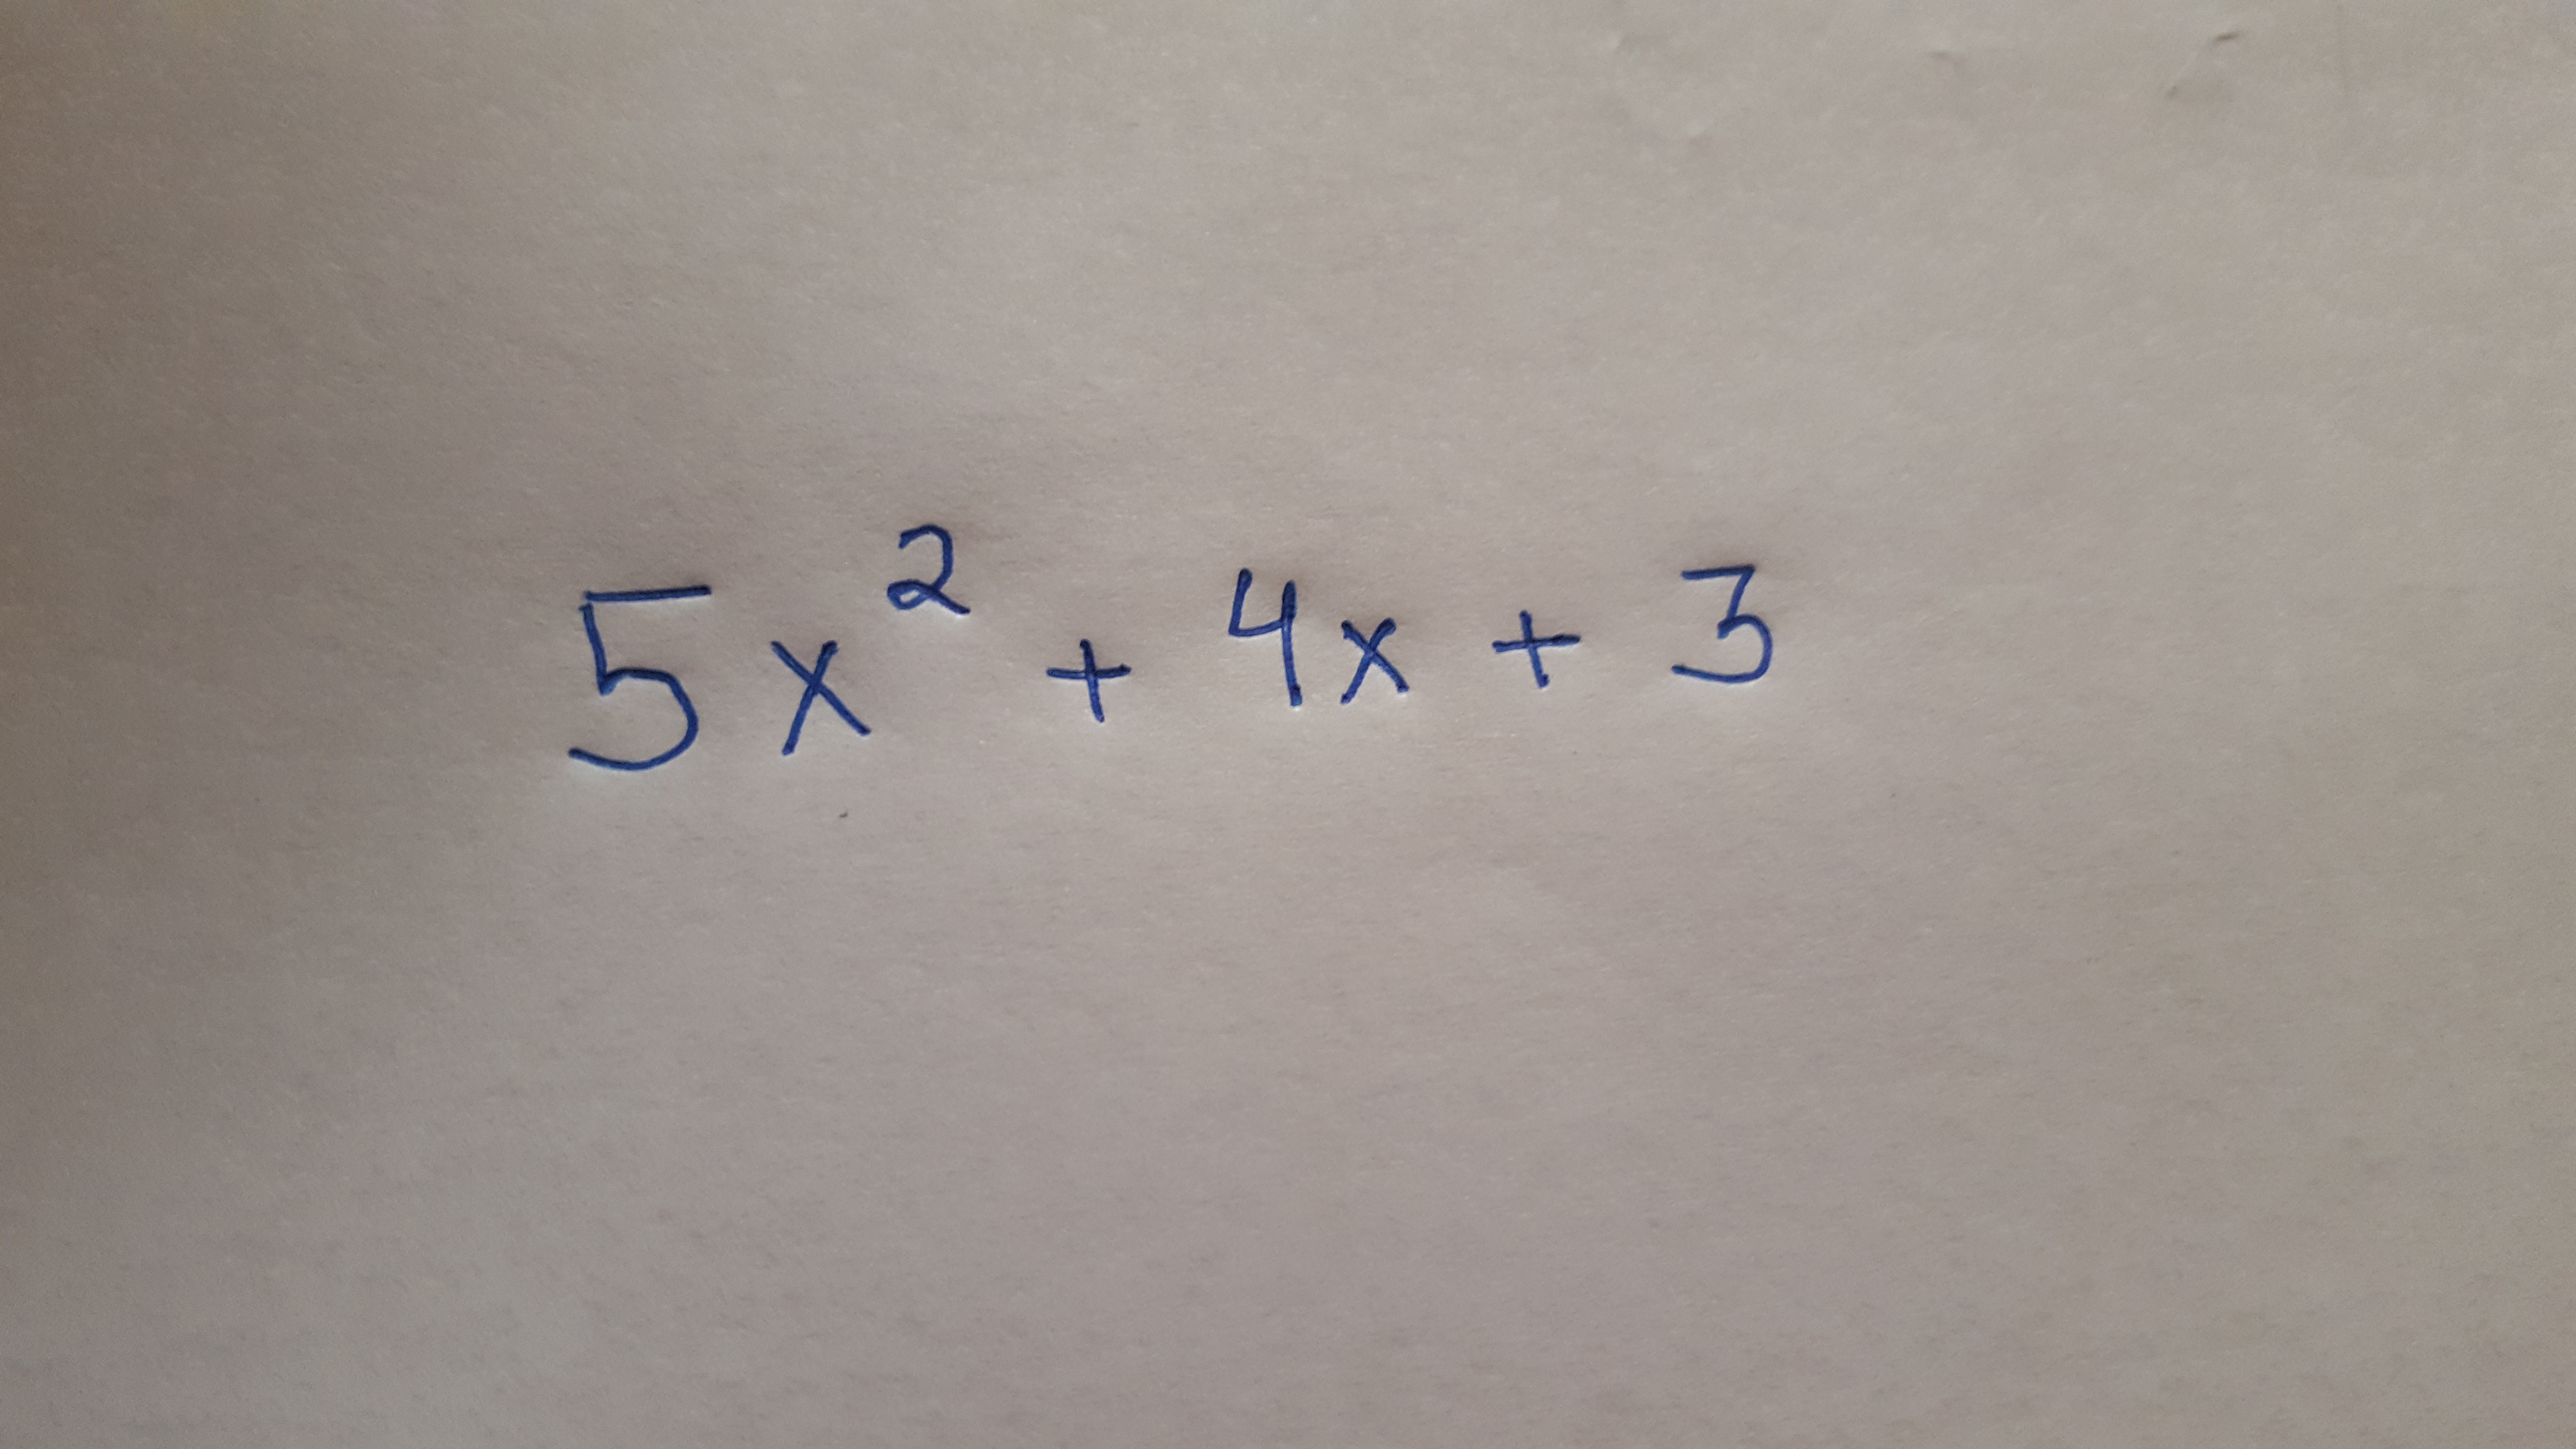 5x² + 4x + 3